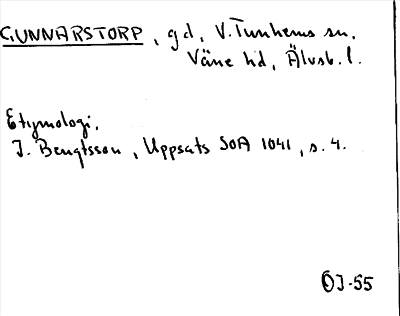 GUNNARSTORP, gd, V. Tunhems sn,
Väne hd, Älvsb. l.
Etymologi.
J. Bengtsson, Uppsats SOA 1041, s. 4.
ÖJ-55